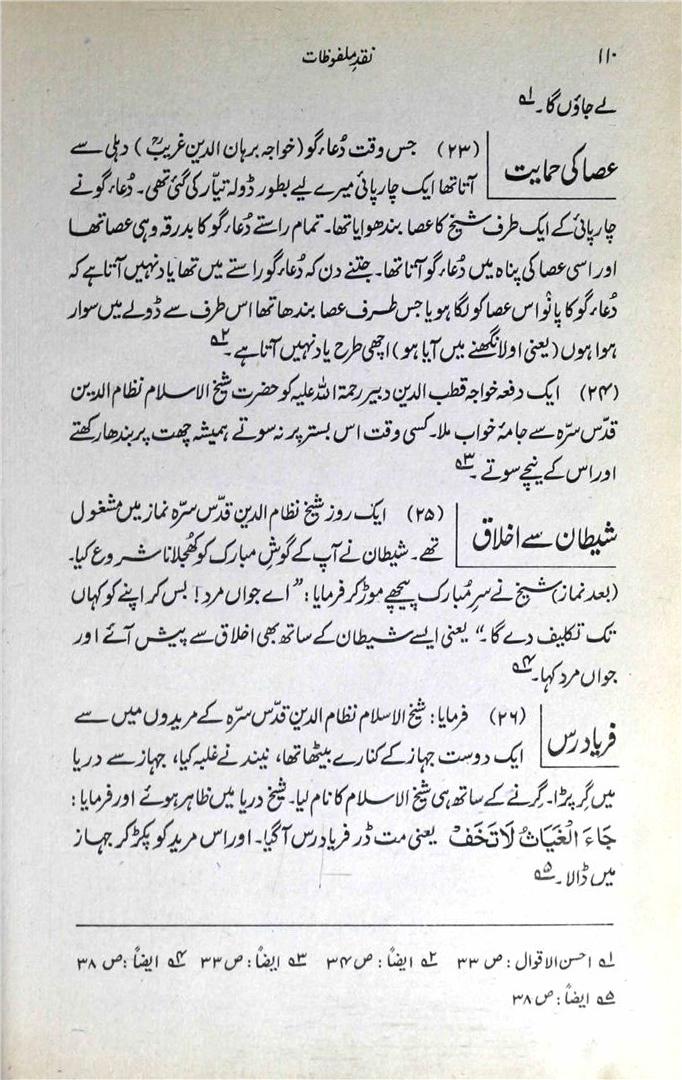 ۱۱۰
نقدِ ملفوظات
لے جاؤں گا۔ ۱؎
عصا کی حمایت
(۲۳) جس وقت دُعاءگو (خواجہ برہان الدین غریبؒ) دہلی سے
آتا تھا ایک چارپائی میرے لیے بطور ڈولہ تیّار کی گئی تھی۔ دُعاءگو نے
چارپائی کے ایک طرف شیخ کا عصا بندھوایا تھا۔ تمام راستے دُعاءگو کا بدرقہ وہی عصا تھا
اور اسی عصا کی پناہ میں دُعاءگو آتا تھا۔ جتنے دن کہ دُعاءگو راستے میں تھا یاد نہیں آتا ہے کہ
دُعاءگو کا پانْو اس عصا کو لگا ہو یا جس طرف عصا بندھا تھا اس طرف سے ڈولے میں سوار
ہوا ہوں (یعنی اولانگھنے میں آیا ہو) اچھی طرح یاد نہیں آتا ہے۔ ۲؎
(۲۴) ایک دفعہ خواجہ قطب الدین دبیر رحمۃ اللہ علیہ کو حضرت شیخ الاسلام نظام الدین
قدّس سرّہ سے جامۂ خواب ملا۔ کسی وقت اس بستر پر نہ سوتے ہمیشہ چھت پر بندھا رکھتے
اور اس کے نیچے سوتے۔ ۳؎
شیطان سے اخلاق
(۲۵) ایک روز شیخ نظام الدین قدّس سرّہ نماز میں مشغول
تھے۔ شیطان نے آپ کے گوشِ مبارک کو کُھجلانا شروع کیا۔
(بعد نماز) شیخ نے سرِ مُبارک پیچھے موڑ کر فرمایا: ”اے جواں مرد! بس کر اپنے کو کہاں
تک تکلیف دے گا۔“ یعنی ایسے شیطان کے ساتھ بھی اخلاق سے پیش آئے اور
جواں مرد کہا۔ ۴؎
فریاد رس
(۲۶) فرمایا: شیخ الاسلام نظام الدین قدّس سرّہ کے مریدوں میں سے
ایک دوست جہاز کے کنارے بیٹھا تھا، نیند نے غلبہ کیا، جہاز سے دریا
میں گِر پڑا۔ گِرنے کے ساتھ ہی شیخ الاسلام کا نام لیا۔ شیخ دریا میں ظاہر ہوئے اور فرمایا:
جَاءَ الْغَیَاثُ لَا تَخَفْ یعنی مت ڈر فریاد رس آگیا۔ اور اس مرید کو پکڑ کر جہاز
میں ڈالا۔ ۵؎
۱؎ احسن الاقوال: ص ۳۳ ۲؎ ایضاً: ص ۳۴ ۳؎ ایضاً: ص ۳۳ ۴؎ ایضاً: ص ۳۸
۵؎ ایضاً: ص ۳۸